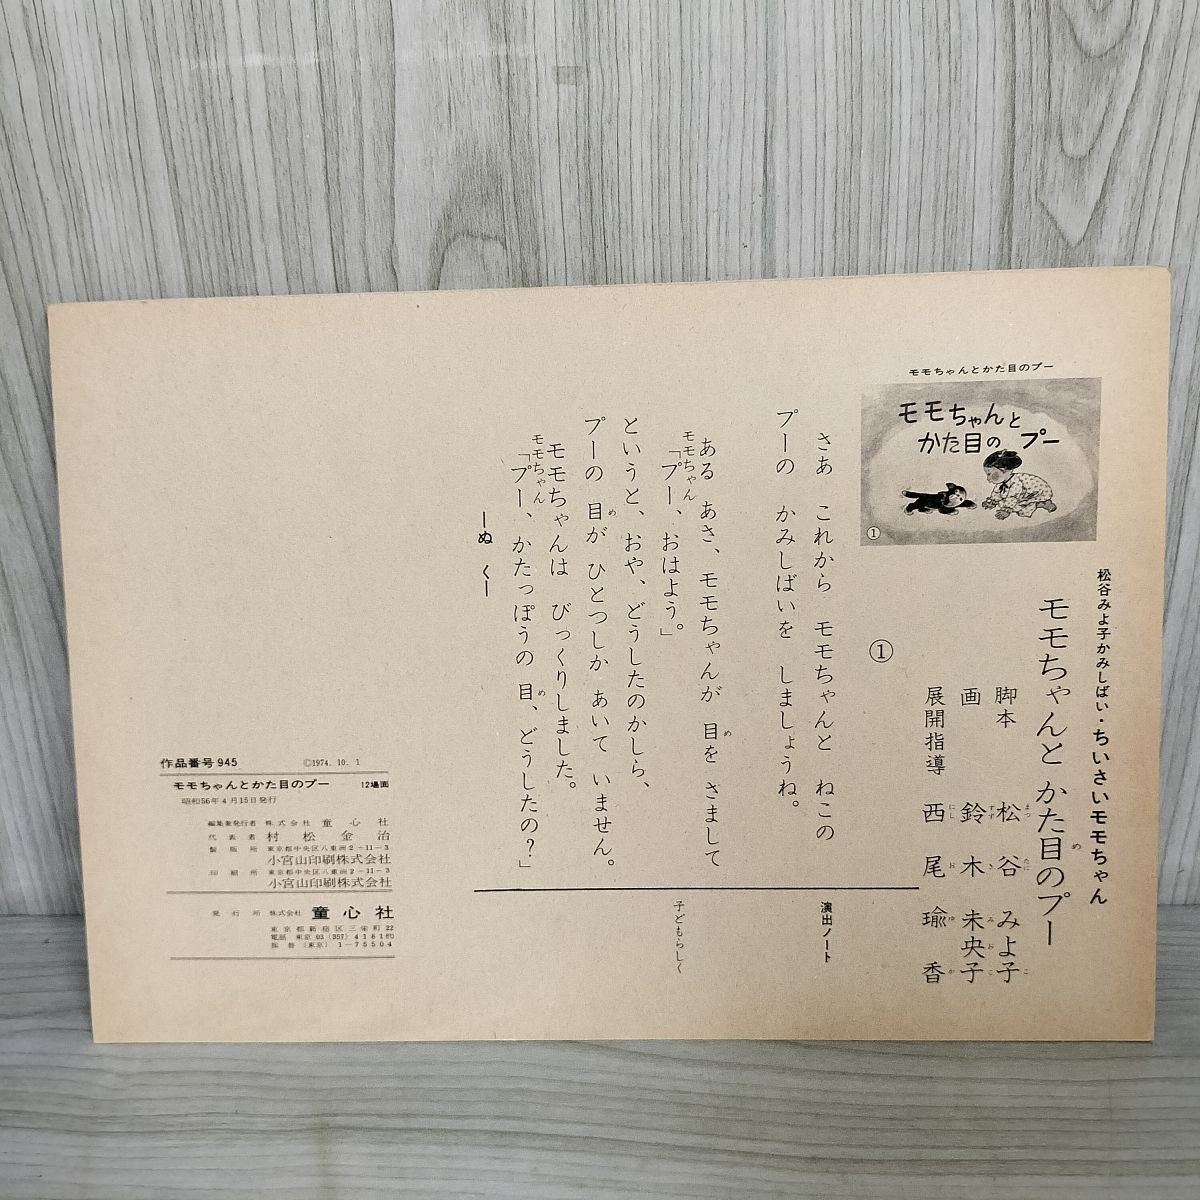 モモちゃんとかた目のプー
モモちゃんと
かた目の プー
①
松谷みよ子かみしばい・ちいさいモモちゃん
モモちゃんと かた目のプー
め
脚本 松谷みよ子
まつ たに こ
画 鈴木未央子
すず き みおこ
展開指導 西尾瑜香
にし お ゆ か
①
さあ これから モモちゃんと ねこの
プーの かみしばいを しましょうね。
ある あさ、モモちゃんが 目を さまして
め
モモちゃん
「プー、おはよう。」
というと、おや、どうしたのかしら、
プーの 目が ひとつしか あいて いません。
め
モモちゃんは びっくりしました。
モモちゃん
「プー、かたっぽうの 目、どうしたの?」
め
―ぬ く―
演出ノート
子どもらしく
作品番号945 ©1974. 10. 1
モモちゃんとかた目のプー 12場面
昭和56年4月15日発行
編集兼発行者 株式会社 童心社
代表者 村松金治
製版所 東京都中央区八重洲2-11-3
小宮山印刷株式会社
印刷所 東京都中央区八重洲2-11-3
小宮山印刷株式会社
発行所 株式会社 童心社
東京都新宿区三栄町22
電話 東京 03 (357) 4181㈹
振替 (東京) 1-75504